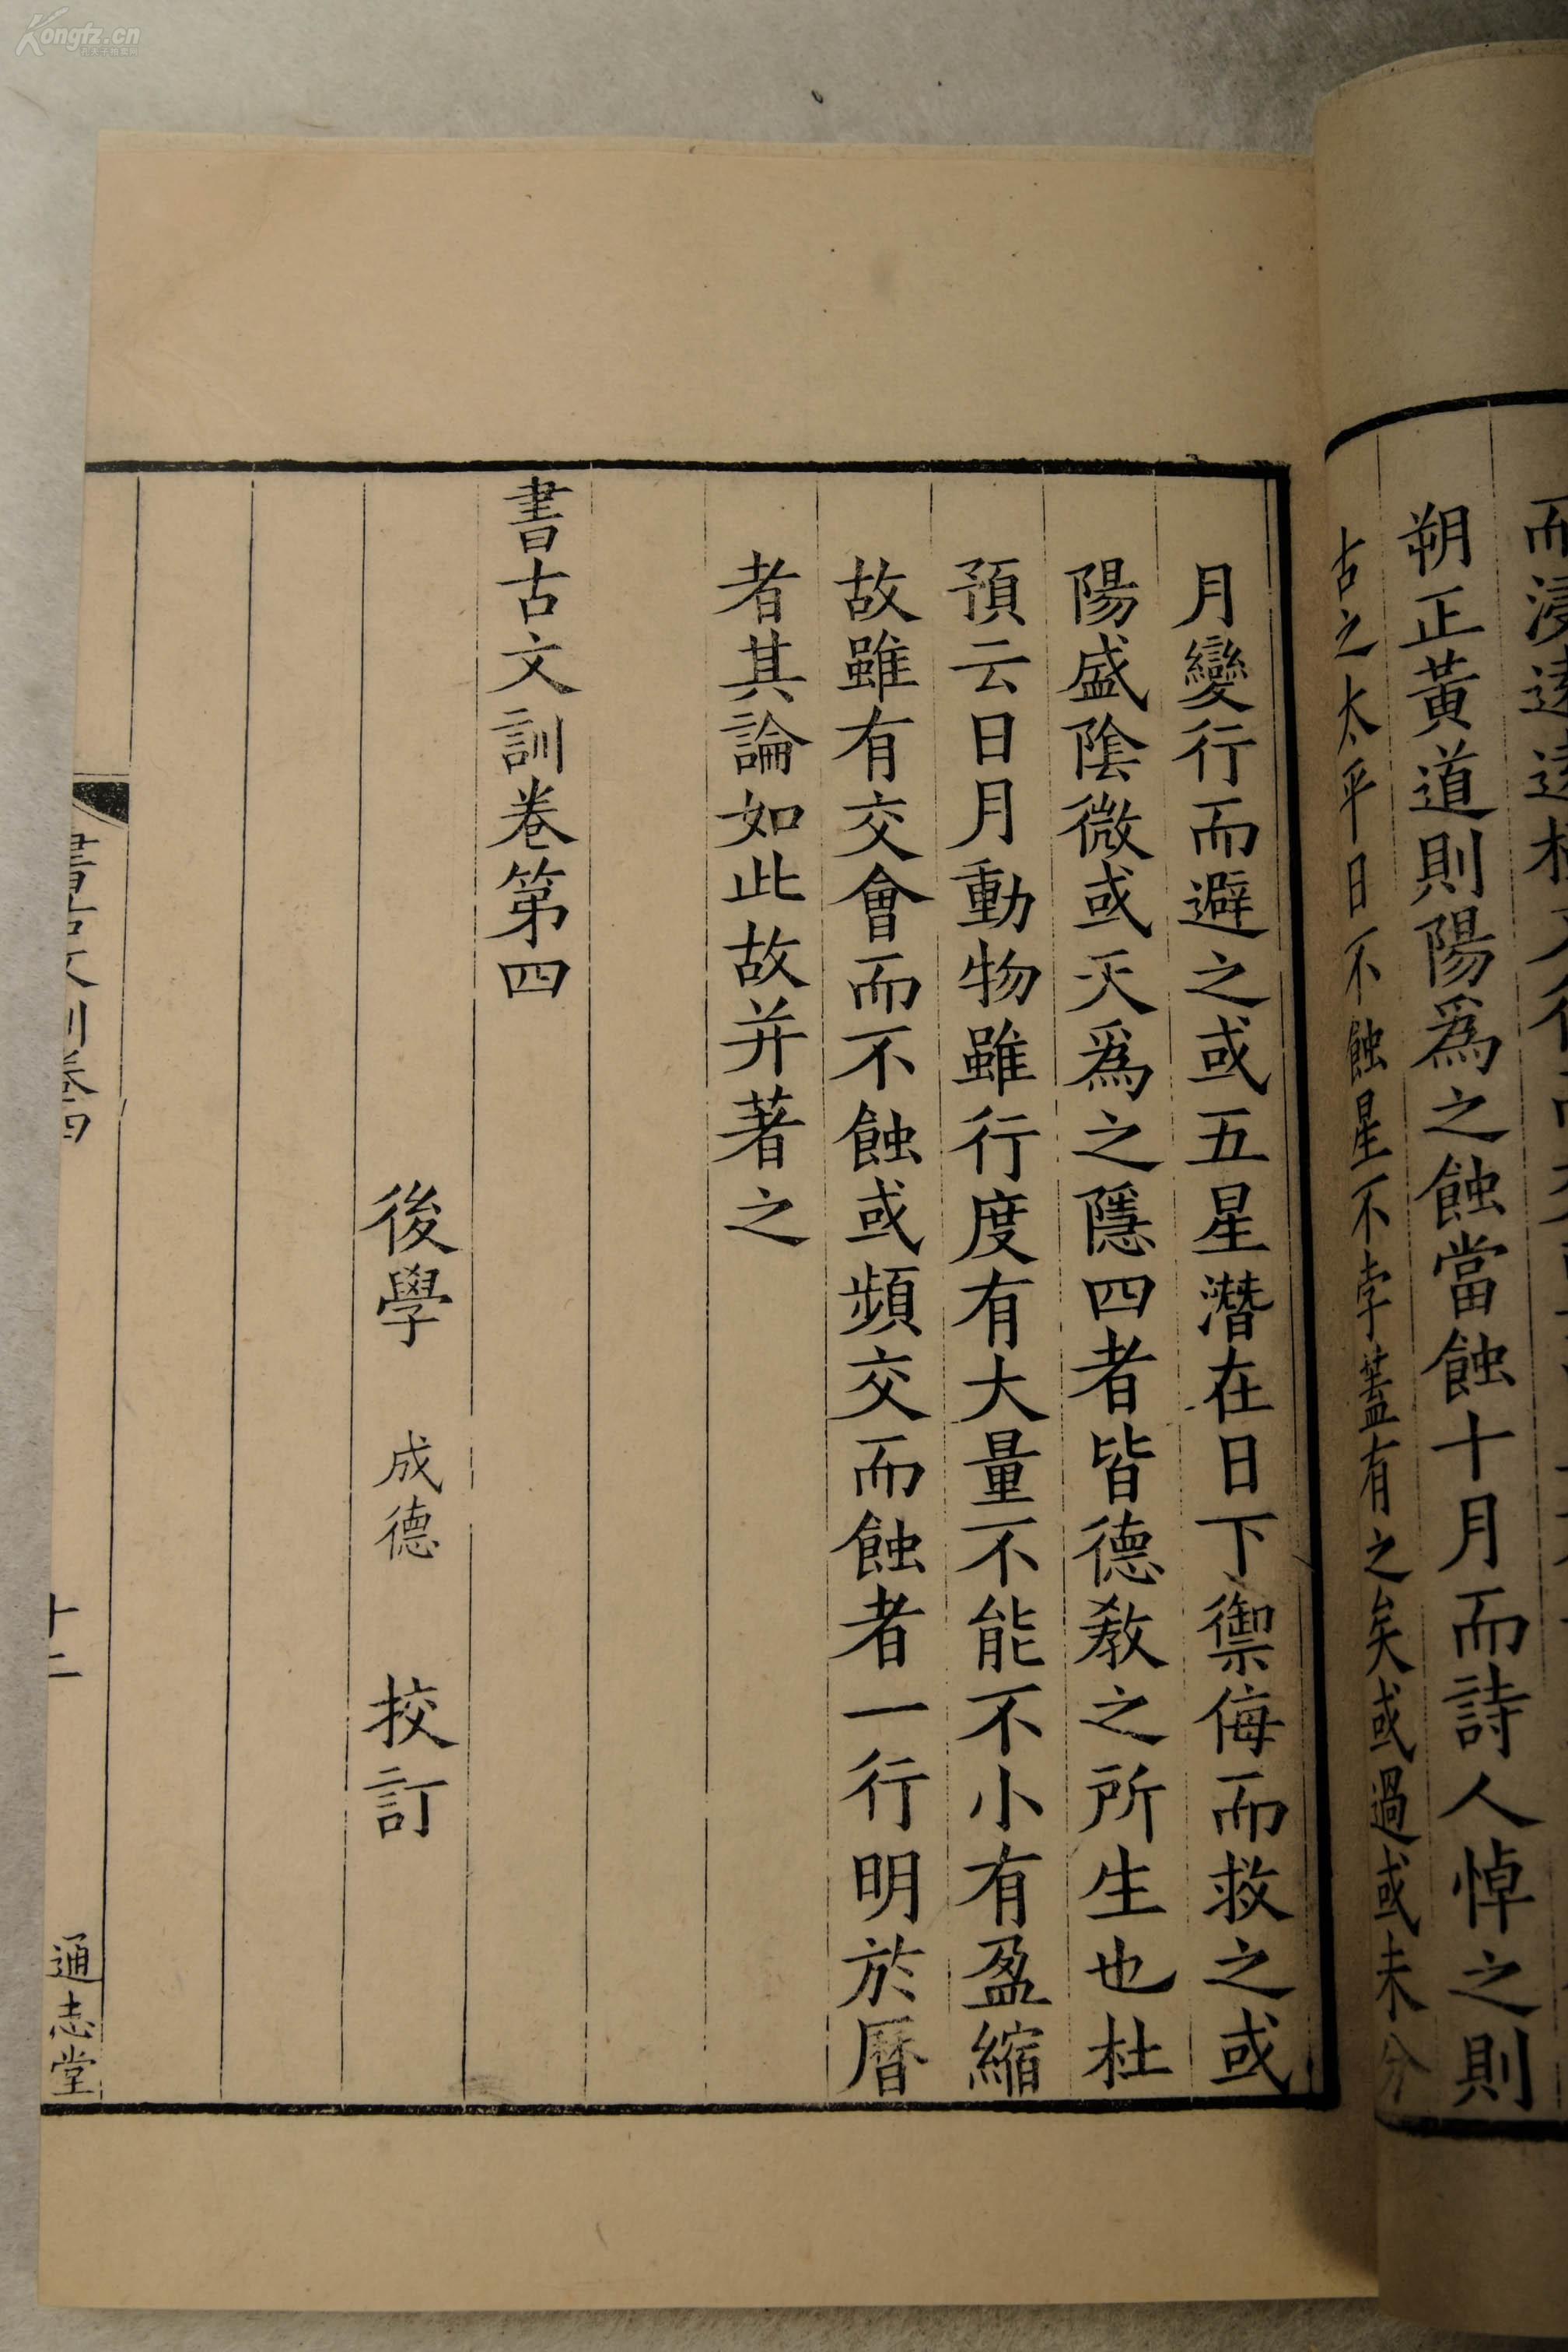 朔正黃道則陽爲之蝕當蝕十月而詩人悼之則
古之太平日不蝕星不孛蓋有之矣或過或未分
月變行而避之或五星潛在日下禦侮而救之或
陽盛陰微或天爲之隱四者皆德教之所生也杜
預云日月動物雖行度有大量不能不小有盈縮
故雖有交會而不蝕或頻交而蝕者一行明於曆
者其論如此故并著之
書古文訓卷第四
後學 成德 挍訂
書古文訓卷四
十二
通志堂
Kongfz.cn